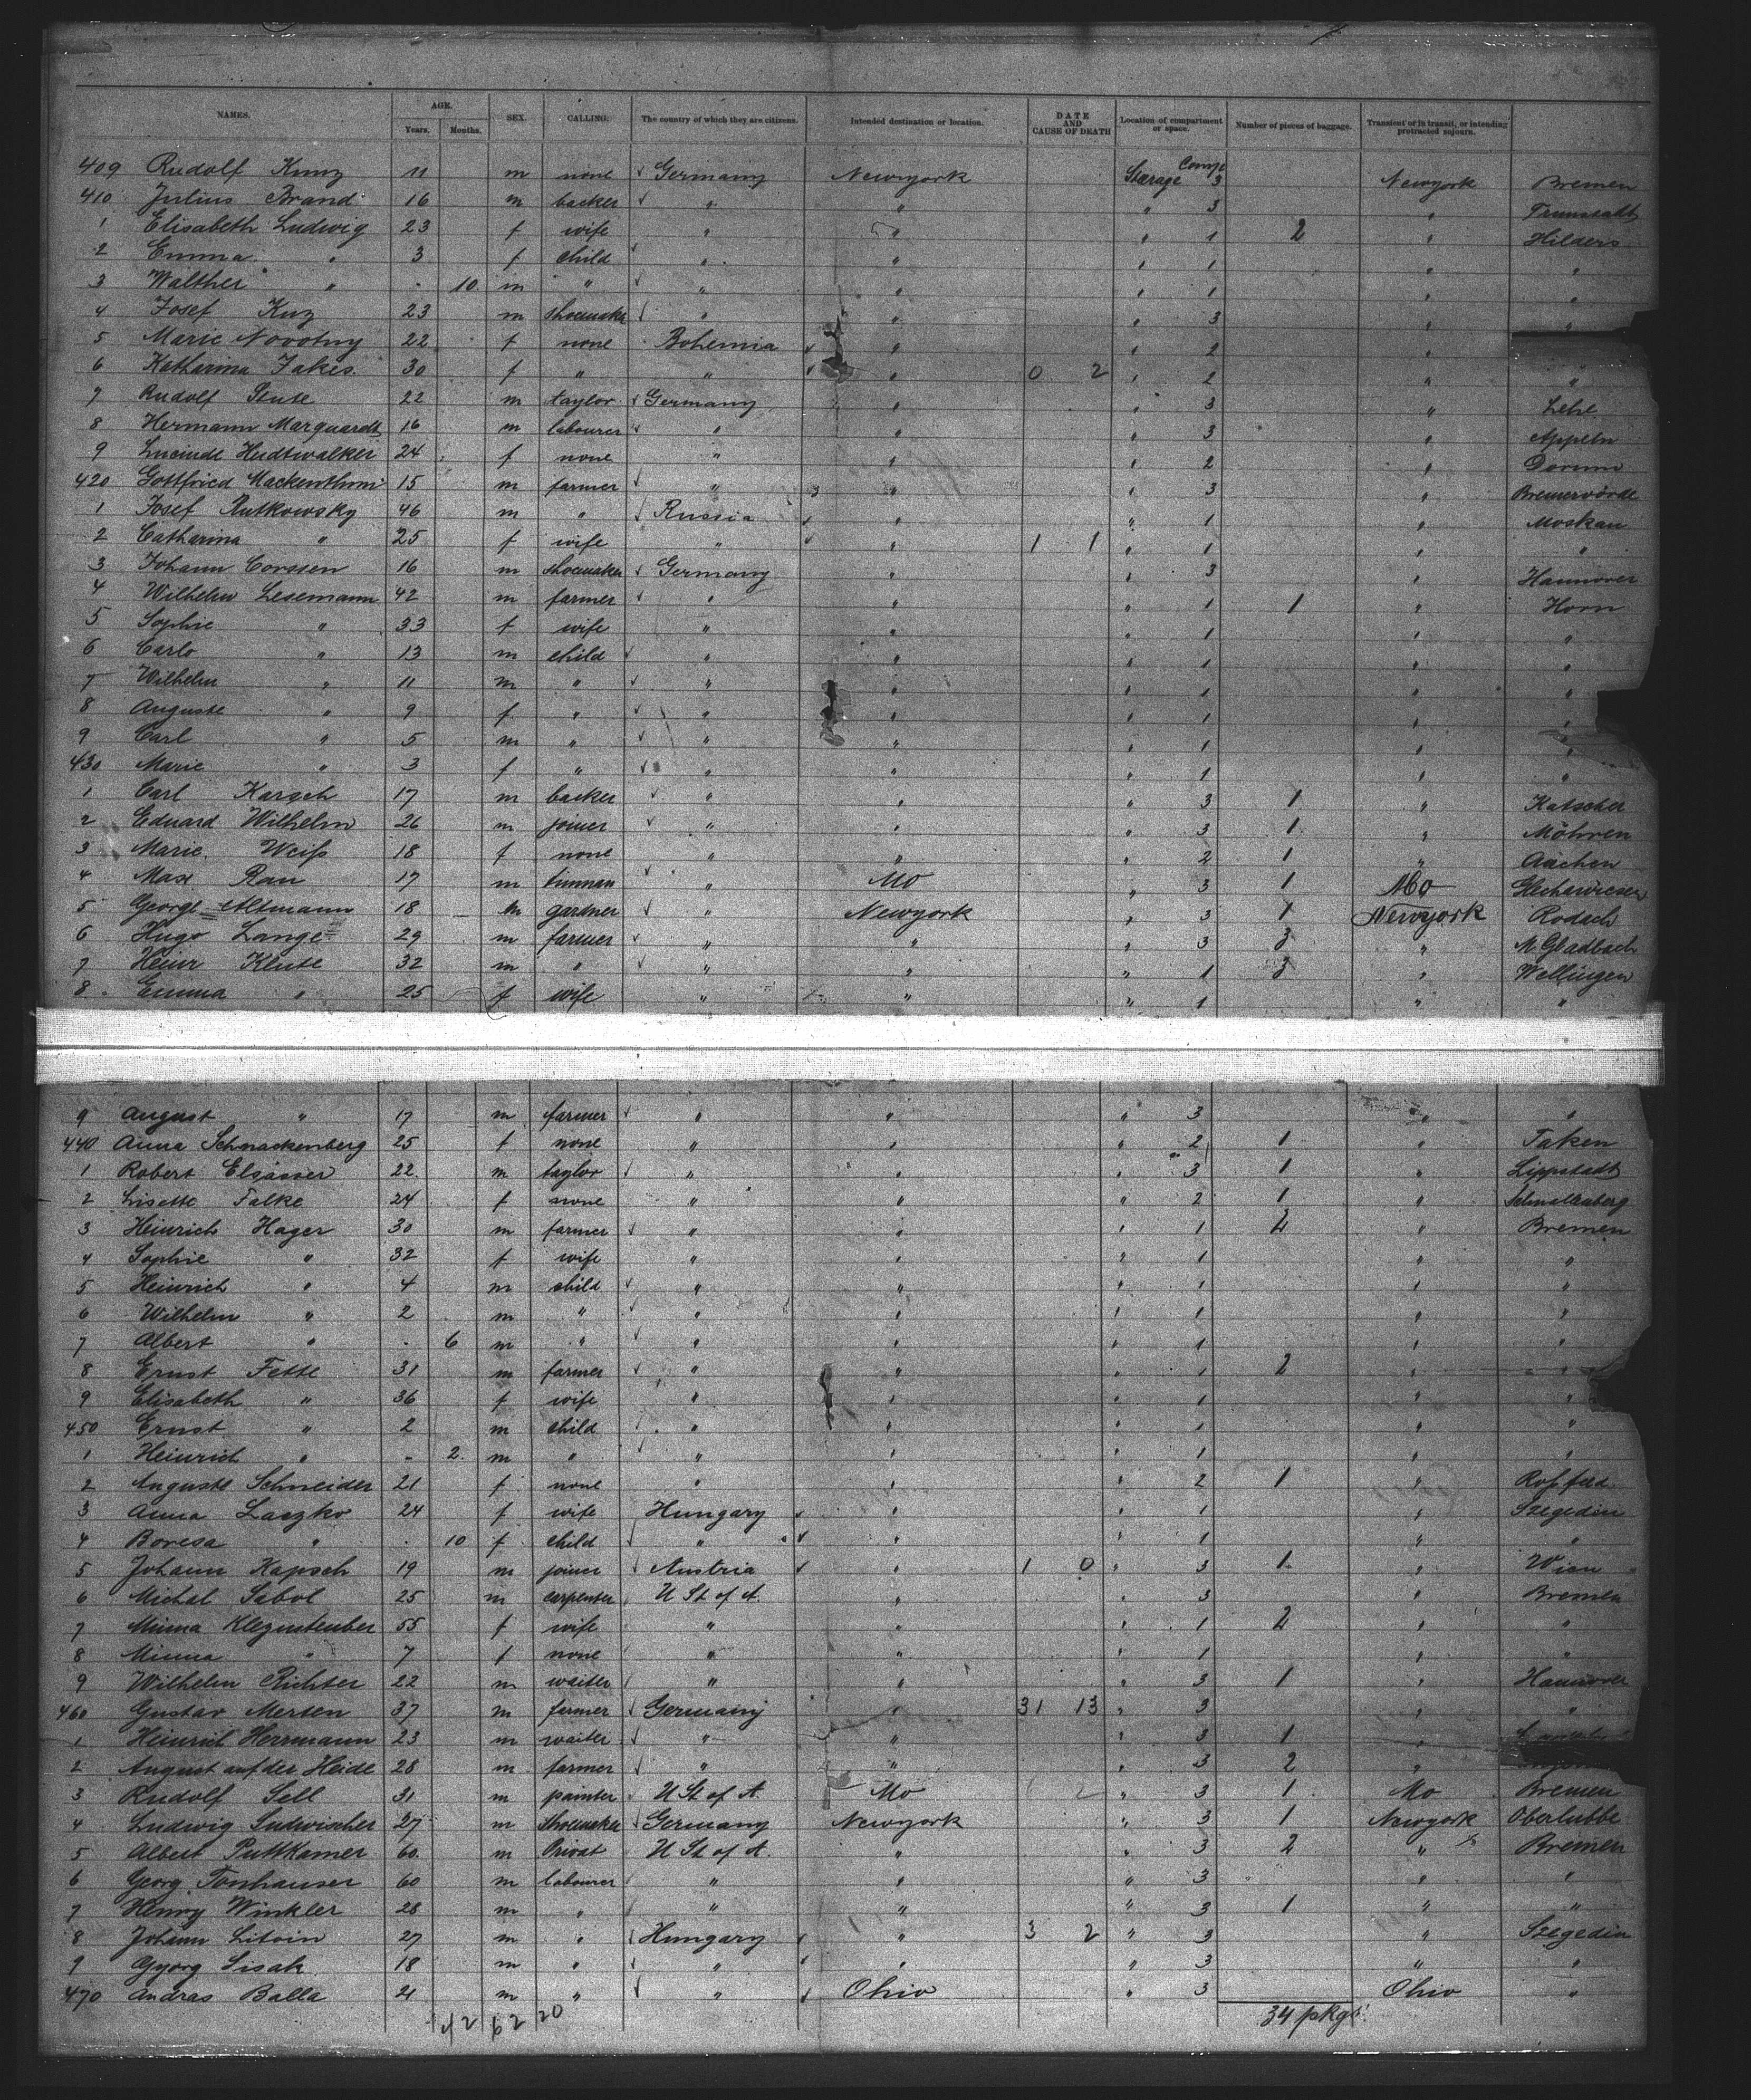 NAMES. AGE. Years. Months. SEX. CALLING. The country of which they are citizens. Intended destination or location. DATE AND CAUSE OF DEATH Location of compartment or space. Number of pieces of baggage. Transient or in transit, or intending protracted sojourn.
409 Rudolf Kunz 11 m none Germany Newyork Starage Comp 3 Newyork Bremen
410 Julius Brand 16 m backer " " " 3 "
1 Elisabeth Ludwig 23 f wife " " " 1 2 " Hilders
2 Emma " 3 f child " " " 1 " "
3 Walther " - 10 m " " " " 1 " "
4 Josef Kuz 23 m shoemaker " " " 3 " "
5 Marie Novotny 22 f none Bohemia " " 2 "
6 Katharina Jakes 30 f " " " 0 2 " 2 " "
7 Rudolf Stute 22 m taylor Germany " " 3 " Lehe
8 Hermann Marquardt 16 m labourer " " " 3 " Appeln
9 Lucinde Hudtwalker 24 f none " " " 2 " Dorum
420 Gottfried Mackenthum 15 m farmer " " " 3 " Bremervörde
1 Josef Rutkowsky 46 m " Russia " " 1 " Moskau
2 Catharina " 25 f wife " " 1 1 " 1 " "
3 Johann Corssen 16 m shoemaker Germany " " 3 " Hannover
4 Wilhelm Lesemann 42 m farmer " " " 1 1 " Horn
5 Sophie " 33 f wife " " " 1 " "
6 Carlo " 13 m child " " " 1 " "
7 Wilhelm " 11 m " " " " 1 " "
8 Auguste " 9 f " " " " 1 " "
9 Carl " 5 m " " " " 1 " "
430 Marie " 3 f " " " " 1 " "
1 Carl Karsch 17 m backer " " " 3 1 " Katscher
2 Eduard Wilhelm 26 m joiner " " " 3 1 " Möhren
3 Marie Weiss 18 f none " " " 2 1 " Aachen
4 Max Rau 17 m tinman " Mo " 3 1 Mo
5 George Altmann 18 m gardner " Newyork " 3 1 Newyork Rodach
6 Hugo Lange 29 m farmer " " " 3 3 " M. Gladbach
7 Heinr Klute 32 m " " " " 1 3 " Wellingen
8 Emma " 25 f wife " " " 1 " "
9 August " 17 m farmer " " " 3 " "
440 Anna Schnackenberg 25 f none " " " 2 1 " Taken
1 Robert Elsässer 22 m taylor " " " 3 1 " Lippstadt
2 Lisette Falke 24 f none " " " 2 1 " Schmallenberg
3 Heinrich Hager 30 m farmer " " " 1 2 " Bremen
4 Sophie " 32 f wife " " " 1 " "
5 Heinrich " 4 m child " " " 1 " "
6 Wilhelm " 2 m " " " " 1 " "
7 Albert " - 6 m " " " " 1 " "
8 Ernst Fette 31 m farmer " " " 1 2 " "
9 Elisabeth " 36 f wife " " " 1 " "
450 Ernst " 2 m child " " " 1 " "
1 Heinrich " - 2 m " " " " 1 " "
2 Auguste Schneider 21 f none " " " 2 1 "
3 Anna Laszko 24 f wife Hungary " " 1 " Szegedin
4 Boresa " - 10 f child " " " 1 " "
5 Johann Kapsch 19 m joiner Austria " 1 0 " 3 1 " Wien
6 Michal Sabol 25 m carpenter U St of A. " " 3 " Bremen
7 Minna 55 f wife " " " 1 2 " "
8 Minna " 7 f none " " " 1 " "
9 Wilhelm Richter 22 m waiter " " " 3 1 " Hannover
460 Gustav Mersen 37 m farmer Germany " 31 13 " 3 " "
1 Heinrich Herrmann 23 m waiter " " " 3 1 "
2 August auf der Heide 28 m farmer " " " 3 2 "
3 Rudolf Sell 31 m painter U St of A. Mo 2 " 3 1 Mo Bremen
4 Ludwig Sudwischer 27 m Shoemaker Germany Newyork " 3 1 Newyork Oberlubbe
5 Albert Puttkamer 60 m Privat U St of A. " " 3 2 " Bremen
6 Georg Tonhauser 60 m labourer " " " 3 " "
7 Henry Winkler 28 m " " " " 3 1 " "
8 Johann Litoin 27 m " Hungary " 3 2 " 3 " Szegedin
9 Gyorg Sisak 18 m " " " " 3 " "
470 Andras Balla 21 m " " Ohio " 3 Ohio "
42 62 20 34 pkgs.